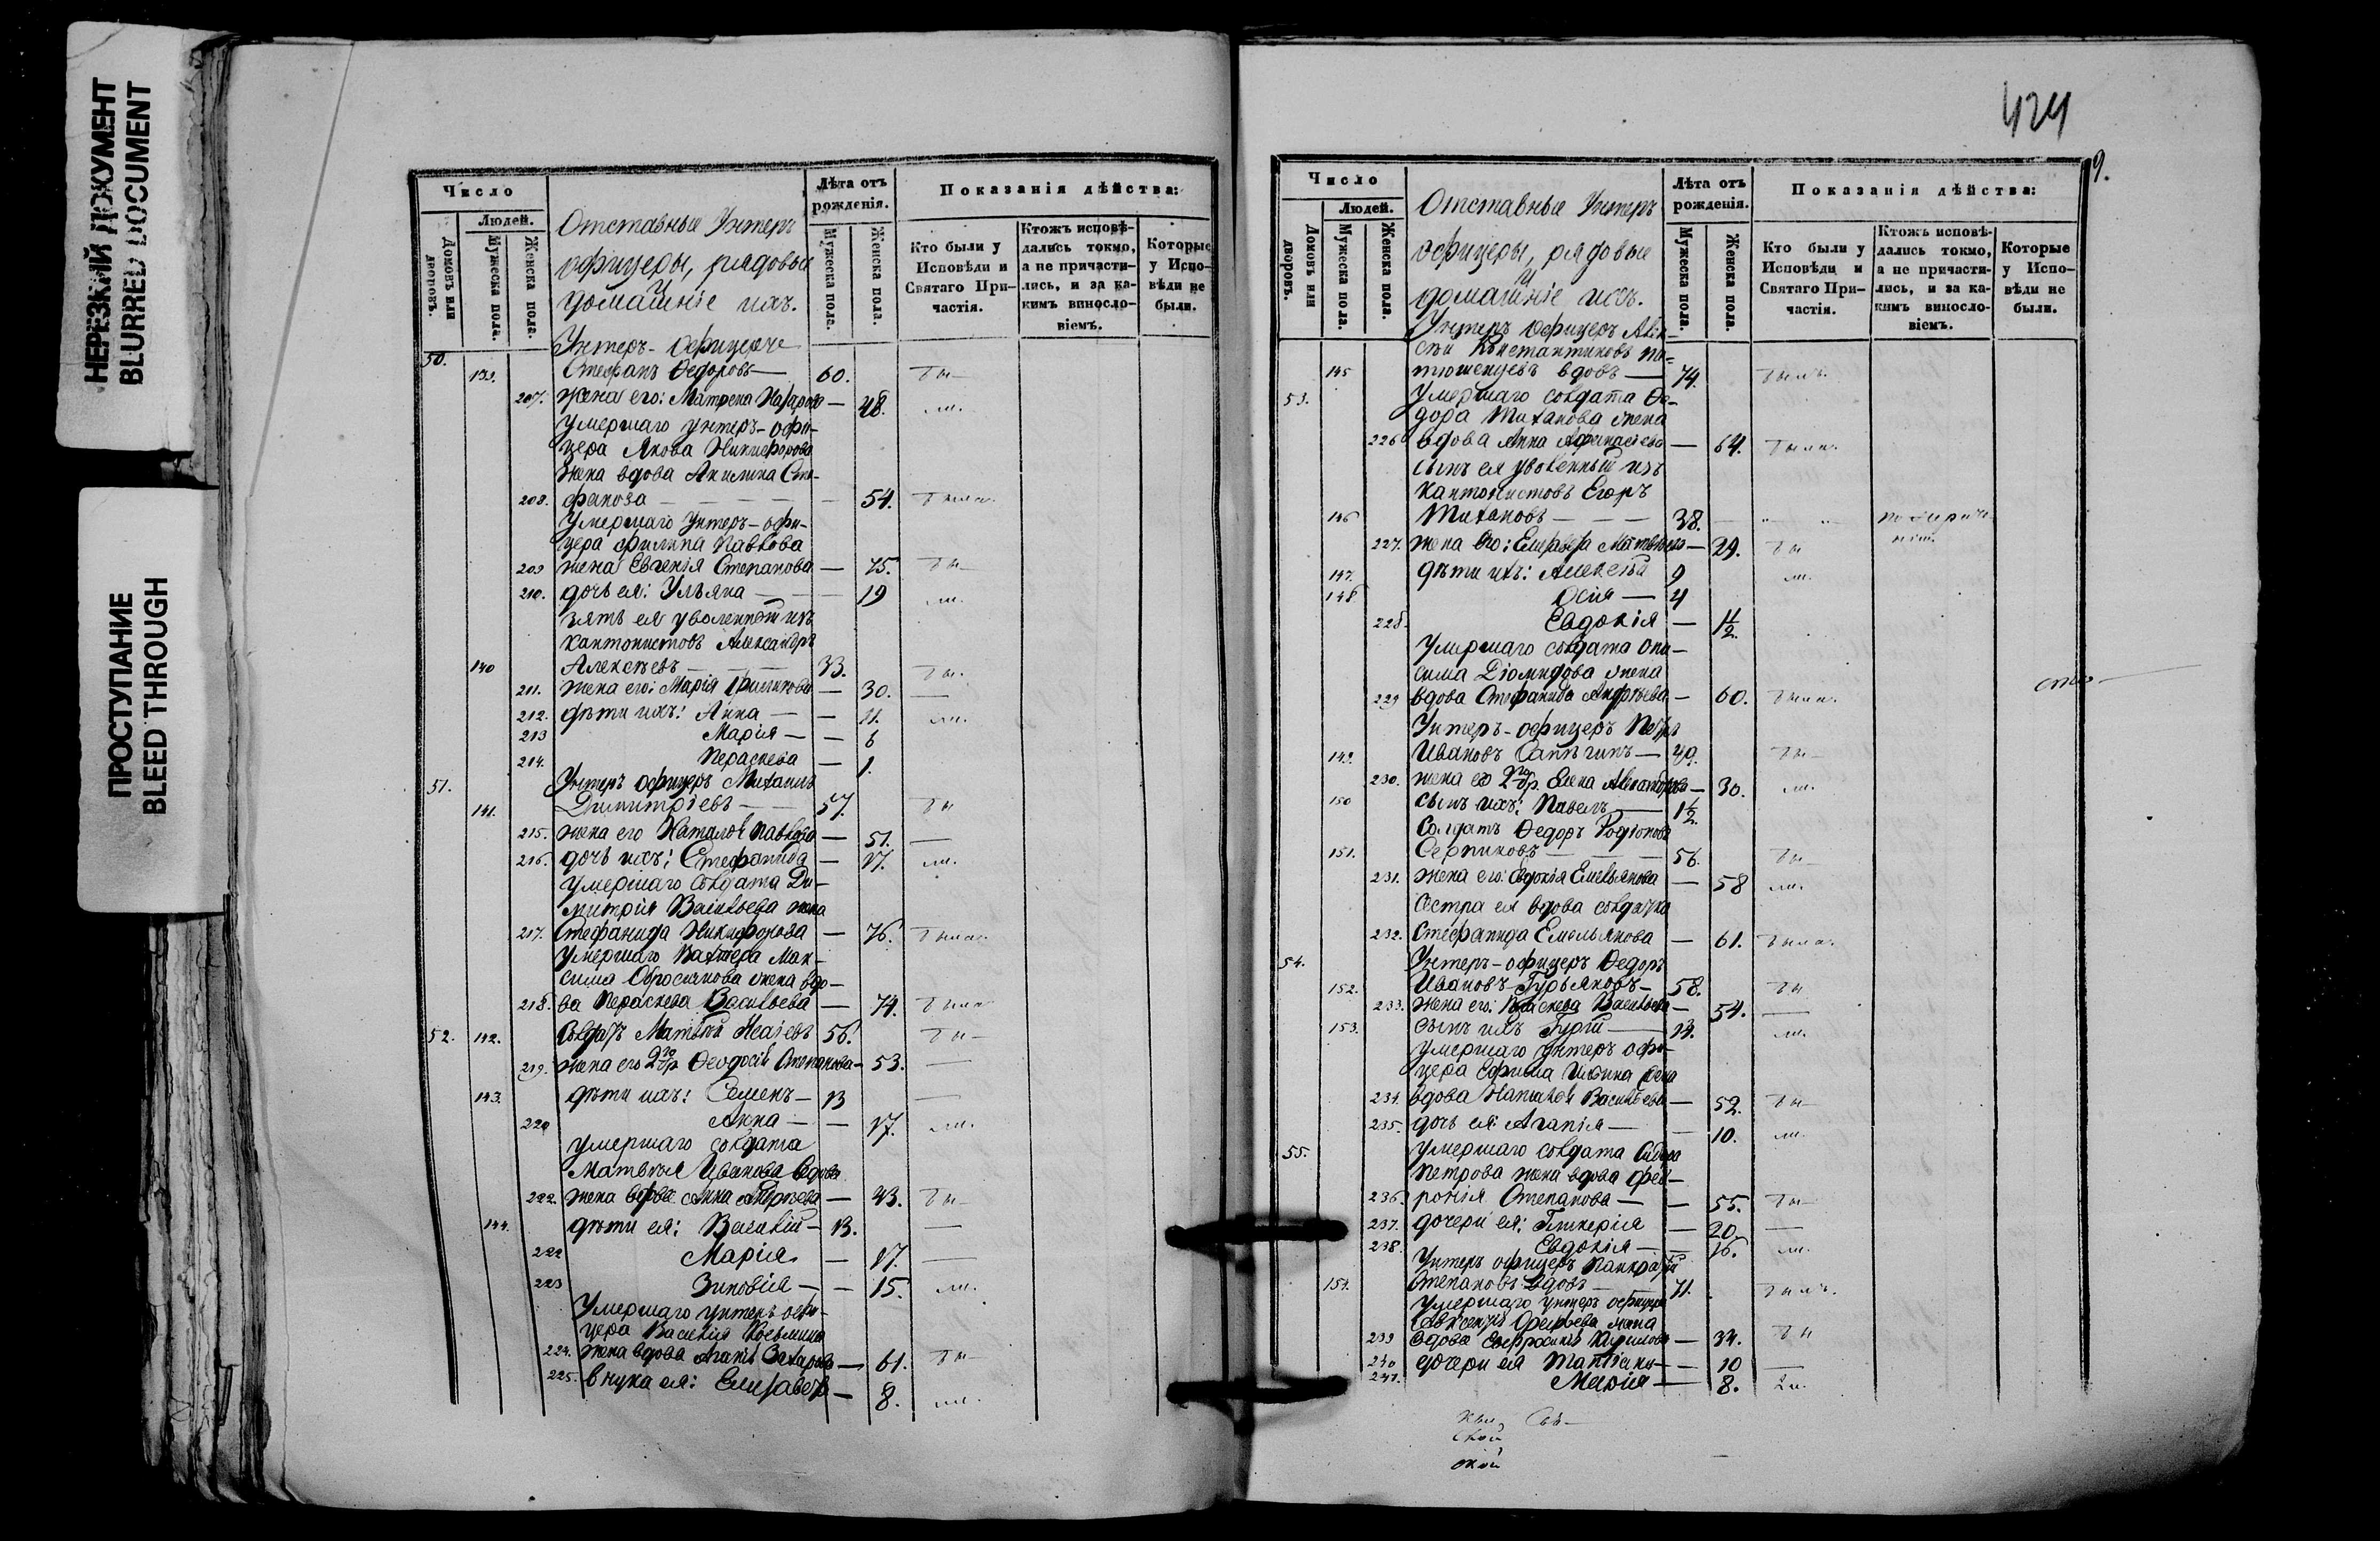 НЕРЕЗКИЙ ДОКУМЕНТ
BLURRED DOCUMENT
ПРОСТУПАНИЕ
BLEED THROUGH
Число
Людей.
Домовъ или дворовъ.
Мужеска пола.
Женска пола.
Отставные Унтеръ
офицеры, рядовые
и
домашніе ихъ.
Лѣта отъ рожденія.
Мужеска пола.
Женска пола.
Показанія дѣйства:
Кто были у Исповѣди и Святаго Причастія.
Ктожъ исповѣдались токмо, а не причастились, и за какимъ винословіемъ.
Которые у Исповѣди не были.
50. Унтеръ-офицеръ
139. Стефанъ Федоровъ — 60. бы-
207. жена его: Матрена Назарова — 48. ли.
умершаго унтеръ-офи-
цера Якова Никифорова
жена вдова Акилина Сте-
208. фанова — 54. была.
умершаго унтеръ-офи-
цера Филипа Павлова
209 жена Евгенія Степанова — 75. бы-
210. дочь ея: Ульяна — 19 ли.
зять ея уволенный изъ
кантонистовъ Александръ
140 Алексѣевъ — 33. бы-
211. жена его: Марія Филипова — 30. —
212. дѣти ихъ: Анна — 11. ли.
213 Марія — 6
214. Параскева — 1.
51. Унтеръ офицеръ Михаилъ
141. Димитріевъ — 57. бы
215. жена его Наталія Павлова — 51. —
216. дочь ихъ: Стефанида — 17. ли.
умершаго солдата Ди-
митрія Васильева жена
217. Стефанида Никифорова — 76. была.
умершаго Вахтера Мак-
сима Обросимова жена вдо-
218. ва Параскева Васильева — 74. была
52. 142. Солдатъ Матвѣй Исаіевъ 56. бы-
219. жена его 2го бр. Феодосія Степанова — 53. —
143. дѣти ихъ: Семенъ — 13 —
220 Анна — 17. ли.
умершаго солдата
Матвѣя Иванова вдова
222. жена вдова Анна Андреева — 43. бы-
144. дѣти ея: Василій — 13. —
222 Марія — 17. —
223 Зиновія — 15. ли.
Умершаго унтеръ офи-
цера Василія Козьмина
224. жена вдова Агапія Захарова — 61. бы-
225. внука ея: Елизавета — 8. ли.
424
9.
Число
Людей.
Домовъ или дворовъ.
Мужеска пола.
Женска пола.
Отставные Унтеръ
офицеры, рядовые
и
домашніе ихъ.
Лѣта отъ рожденія.
Мужеска пола.
Женска пола.
Показанія дѣйства:
Кто были у Исповѣди и Святаго Причастія.
Ктожъ исповѣдались токмо, а не причастились, и за какимъ винословіемъ.
Которые у Исповѣди не были.
Унтеръ офицеръ Алек-
сѣй Константиновъ
145 вдовъ — 74. былъ.
53. Умершаго солдата Фе-
дора Титакова жена
226 вдова Анна Афанасьева — 64. была.
сынъ ея уволенный изъ
кантонистовъ Егоръ
146 Титаковъ — 38.
227. жена его: Елизавета Матвѣева — 29. бы
147. дѣти ихъ: Алексѣй 9 ли.
148. Осія — 4
228. Евдокія — 1 1/2.
Умершаго солдата Они-
сима Діомидова жена
229 вдова Стефанида Андреева — 60. была.
Унтеръ-офицеръ Петръ
149. Ивановъ Сапѣгинъ — 49. бы-
230. жена его 2го бр. Елена Александрова — 30. ли.
150 сынъ ихъ: Павелъ — 1 1/2.
Солдатъ Федоръ Родіоновъ
151. Серпиковъ — 56. бы-
231. жена его: Евдокія Емельянова — 58 ли.
Сестра ея вдова солдатка
232. Стефанида Емельянова — 61. была.
54. Унтеръ-офицеръ Федоръ
152. Ивановъ Гурьяновъ — 58. бы
233. жена его: Параскева Васильева — 54. —
153. сынъ ихъ Гурій — 14. ли.
умершаго унтеръ офи-
цера Ефима жена
234. вдова Наталія Васильева — 52. бы-
235. дочь ея: Агапія — 10. ли.
55. умершаго солдата Сидора
Петрова жена вдова Фев-
236. ронія Степанова — 55. бы-
237. дочери ея: Гликерія — 20. —
238. Евдокія — 16. ли.
Унтеръ офицеръ Панкратій
154. Степановъ вдовъ — 71. былъ.
Умершаго унтеръ офицера
жена
239 вдова Евфросинія — 34. бы
240 дочери ея Татіана — 10 —
241. Марія — 8. ли.